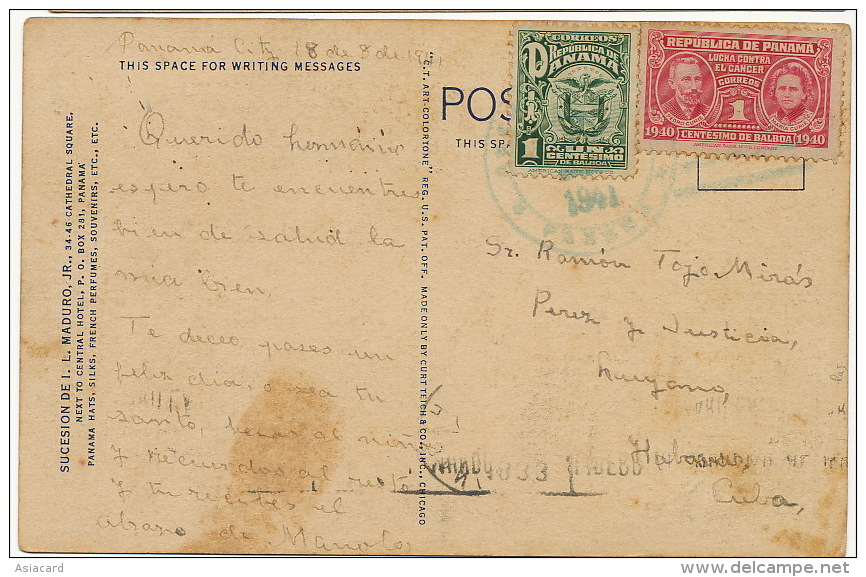 Panamá City 18 de 8 de 1941
THIS SPACE FOR WRITING MESSAGES
Querido hermanio
espero te encuentres
bien de salud la
mia bien.
Te deceo pases un
feliz dia, o sea tu
santo, besos al niño
y recuerdos al resto
y tu recibes el
abrazo de Manolo
SUCESION DE I. L. MADURO, JR., 34-46 CATHEDRAL SQUARE,
NEXT TO CENTRAL HOTEL, P. O. BOX 281, PANAMÁ
PANAMA HATS, SILKS, FRENCH PERFUMES, SOUVENIRS, ETC., ETC.
"C.T. ART-COLORTONE" REG. U.S. PAT. OFF. MADE ONLY BY CURT TEICH & CO., INC., CHICAGO
POS
THIS SPA
CORREOS
REPÚBLICA DE
PANAMÁ
1
UN
CENTÉSIMO
DE BALBOA
AMERICAN BANK NOTE COMPANY
REPÚBLICA DE PANAMÁ
LUCHA CONTRA
EL CANCER
CORREOS
1
1940 CENTÉSIMO DE BALBOA 1940
AMERICAN BANK NOTE COMPANY
1941
Sr. Ramón Tojo Mirás
Perez y Justicia,
Luyano,
Habana,
Cuba,
Asiacard
www.delcampe.net